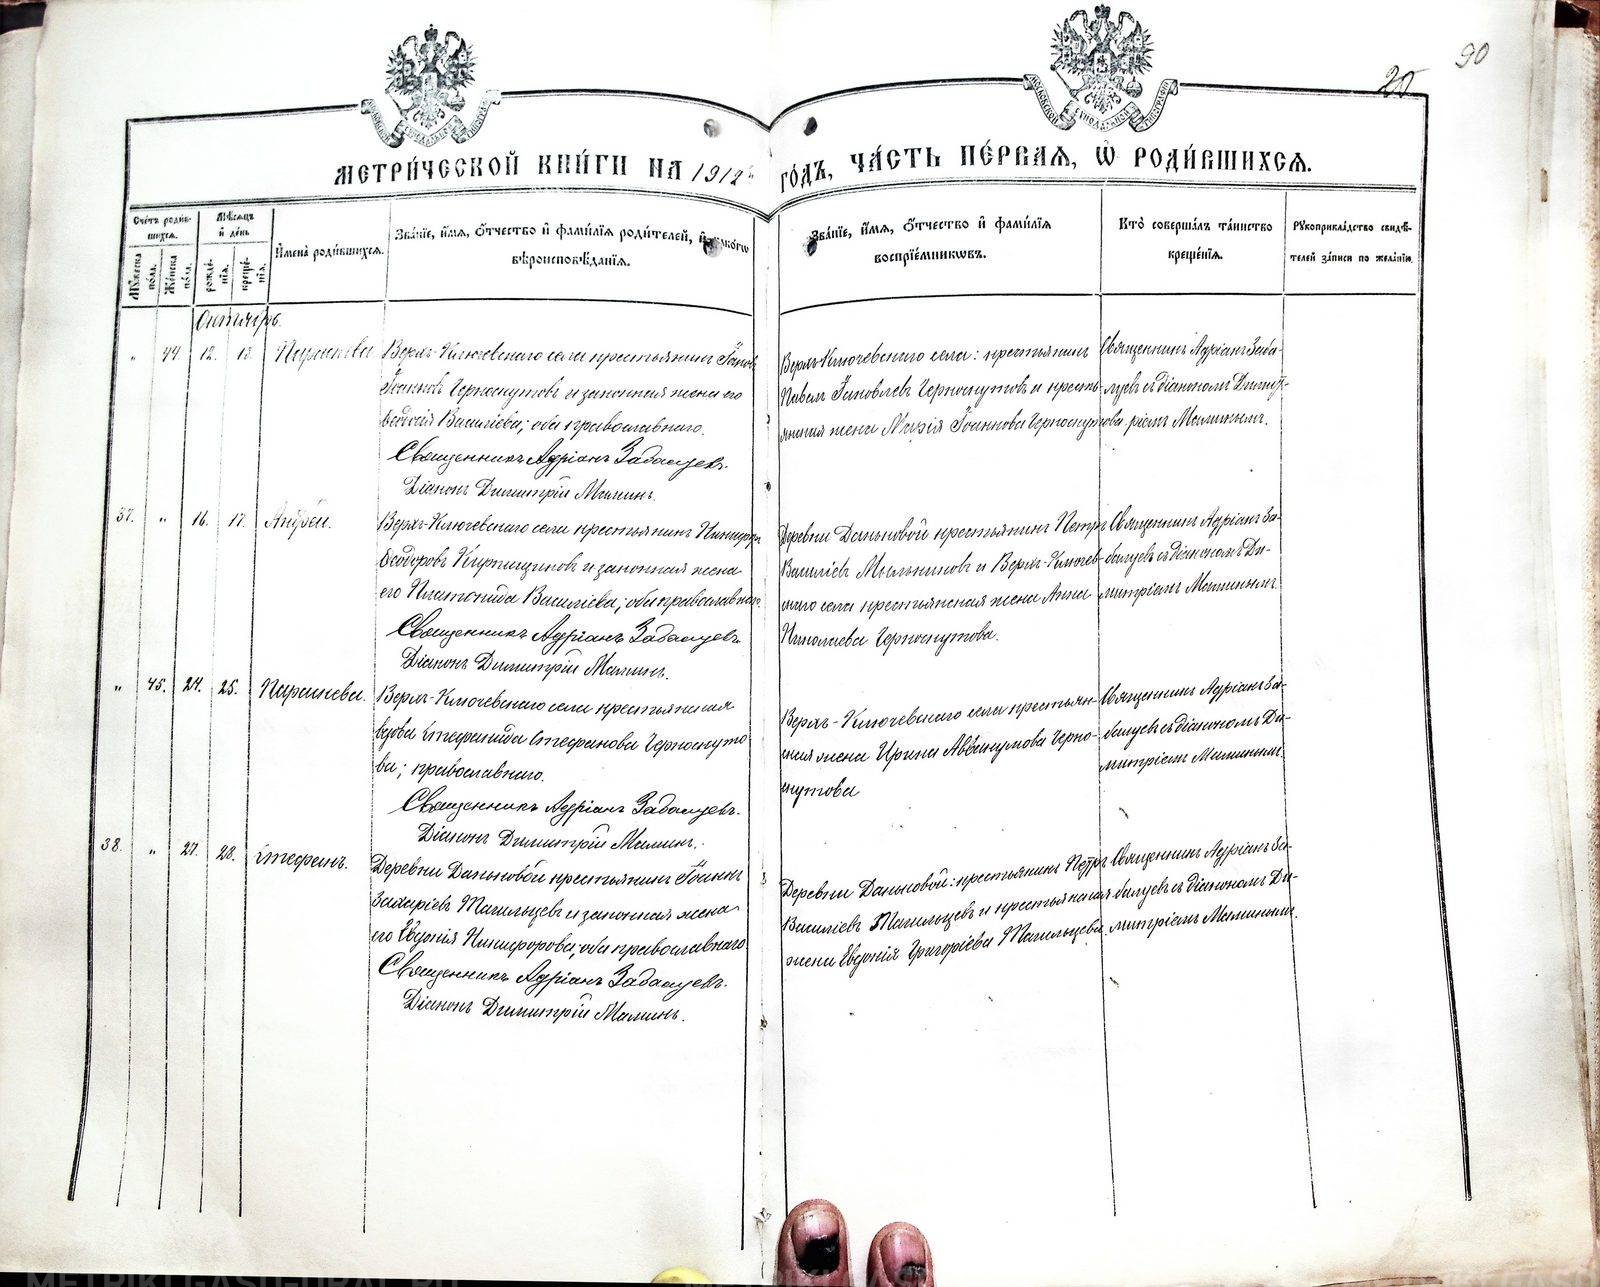 90
20
МОСКОВСКОЙ СѴНОДАЛЬНОЙ ТИПОГРАФІИ
МОСКОВСКОЙ СѴНОДАЛЬНОЙ ТИПОГРАФІИ
МЕТРИ́ЧЕСКОЙ КНИ́ГИ НА 1912й ГО́ДЪ, ЧА́СТЬ ПЕ́РВАЯ, Ѡ РОДИ́ВШИХСЯ.
Сче́тъ роди́вшихся.
Му́жеска по́ла.
Же́нска по́ла.
Мѣ́сяцъ и де́нь
рожде́нія.
креще́нія.
И҆мена̀ роди́вшихся.
Зва́нїе, и҆́мя, ѻ҆́тчество и҆ фами́лїя роди́телей, и҆ како́гѡ
вѣроисповѣ́данїя.
Зва́нїе, и҆́мя, ѻ҆́тчество и҆ фами́лїя
воспрїе́мникѡвъ.
Кто̀ соверша́лъ та́инство
креще́нїя.
Рꙋкоприкла́дство свидѣ́-
телей за́писи по жела́нїю.
Октябрь.
„ 44. 12. 13. Параскева
Верхъ-Ключевскаго села крестьянинъ Іаковъ
Іоанновъ Черноскутовъ и законная жена его
Ѳеодосія Васильева; оба православнаго.
Священникъ Адріанъ Забалуевъ.
Діаконъ Димитрій Маминъ.
Верхъ-Ключевскаго села: крестьянинъ
Павелъ Іаковлевъ Черноскутовъ и кресть-
янская жена Марія Іоаннова Черноскутова
Священникъ Адріанъ Заба-
луевъ съ діакономъ Димит-
ріемъ Маминымъ.
37. „ 16. 17. Андрей.
Верхъ-Ключевскаго села крестьянинъ Никифоръ
Ѳеодоровъ Кирпищиковъ и законная жена
его Платонида Васильева; оба православнаго.
Священникъ Адріанъ Забалуевъ.
Діаконъ Димитрій Маминъ.
Деревни Даньковой крестьянинъ Петръ
Васильевъ Мыльниковъ и Верхъ-Ключев-
скаго села крестьянская жена Анна
Николаева Черноскутова.
Священникъ Адріанъ За-
балуевъ съ діакономъ Ди-
митріемъ Маминымъ.
„ 45. 24. 25. Параскева.
Верхъ-Ключевскаго села крестьянская
вдова Стефанида Стефанова Черноскуто
ва; православнаго.
Священникъ Адріанъ Забалуевъ.
Діаконъ Димитрій Маминъ.
Верхъ-Ключевскаго села крестьян-
ская жена Ирина Аввакумова Черно-
скутова
Священникъ Адріанъ За-
балуевъ съ діакономъ Ди-
митріемъ Маминымъ.
38. „ 27. 28. Стефанъ.
Деревни Даньковой крестьянинъ Іоаннъ
Захаріевъ Тагильцевъ и законная жена
его Евдокія Никифорова; оба православнаго.
Священникъ Адріанъ Забалуевъ.
Діаконъ Димитрій Маминъ.
Деревни Даньковой: крестьянинъ Петръ
Васильевъ Тагильцевъ и крестьянская
жена Евдокія Григоріева Тагильцева.
Священникъ Адріанъ За-
балуевъ съ діакономъ Ди-
митріемъ Маминымъ.